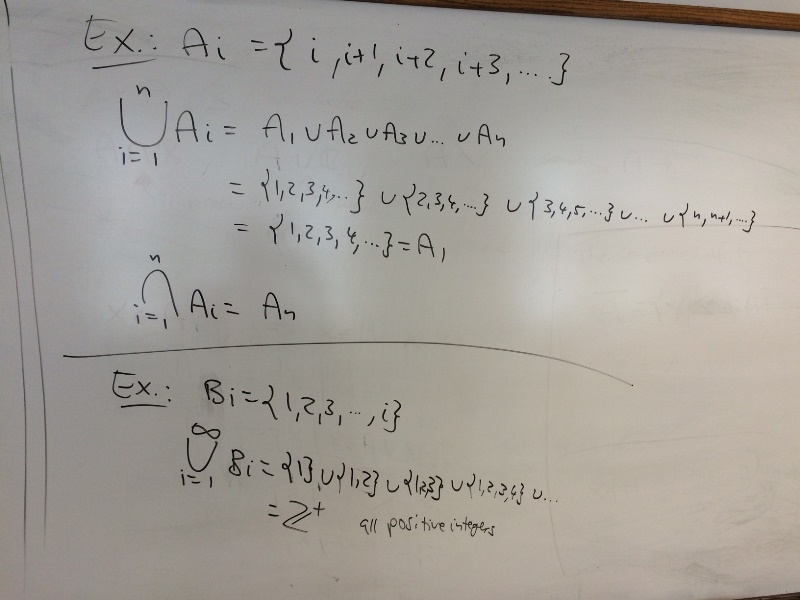 Ex.: Ai = { i, i+1, i+2, i+3, .... }
n
⋃ Ai = A1 ∪ A2 ∪ A3 ∪ ... ∪ An
i=1
= {1,2,3,4,...} ∪ {2,3,4,...} ∪ {3,4,5,...} ∪ ... ∪ {n, n+1, ...}
= {1,2,3,4,...} = A1
n
⋂ Ai = An
i=1
Ex.: Bi = {1,2,3,...,i}
∞
⋃ Bi = {1} ∪ {1,2} ∪ {1,2,3} ∪ {1,2,3,4} ∪ ...
i=1
= ℤ+ all positive integers